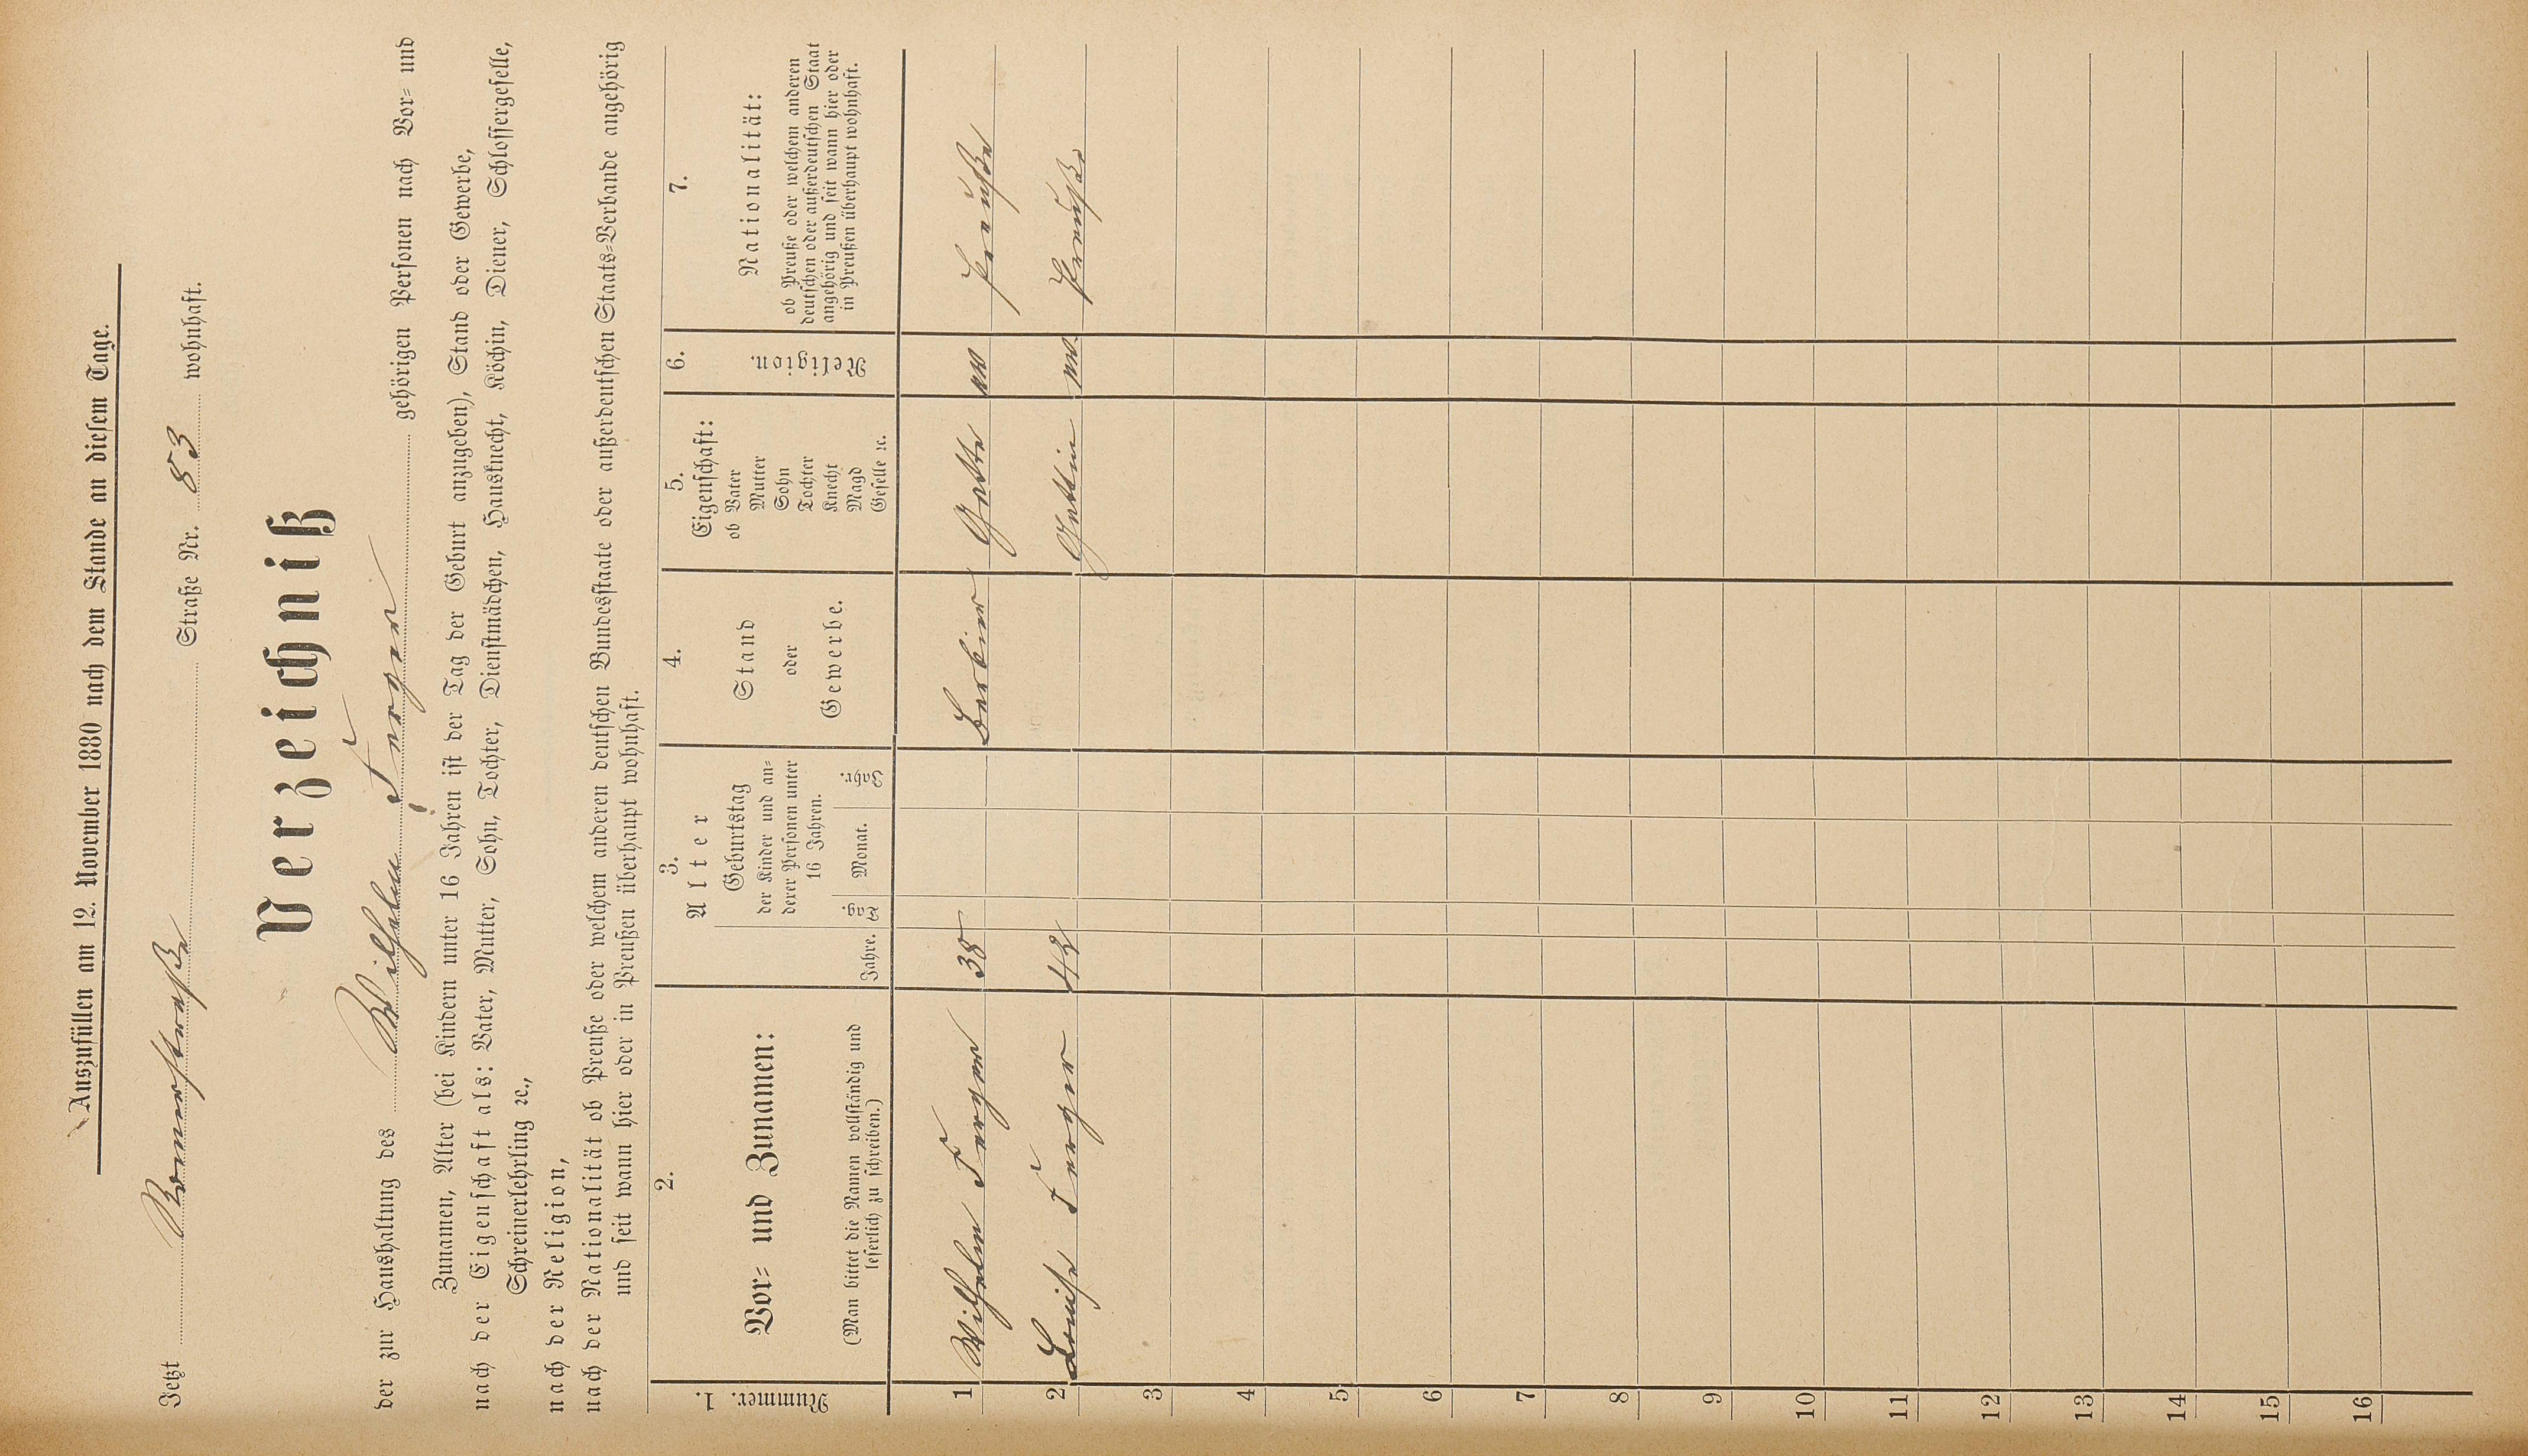 Auszufüllen am 12. November 1880 nach dem Stande an diesem Tage.
Jetzt Bonnerstraße Straße Nr. 83 wohnhaft.
Verzeichniß
der zur Haushaltung des Wilhelm Ferger gehörigen Personen nach Vor- und
Zunamen, Alter (bei Kindern unter 16 Jahren ist der Tag der Geburt anzugeben), Stand oder Gewerbe,
nach der Eigenschaft als: Vater, Mutter, Sohn, Tochter, Dienstmädchen, Hausknecht, Köchin, Diener, Schlossergeselle,
Schreinerlehrling ꝛc.,
nach der Religion,
nach der Nationalität ob Preuße oder welchem anderen deutschen Bundesstaate oder außerdeutschen Staats-Verbande angehörig
und seit wann hier oder in Preußen überhaupt wohnhaft.
1. Nummer.
2.
Vor- und Zunamen:
(Man bittet die Namen vollständig und
leserlich zu schreiben.)
3.
Alter
Jahre.
Geburtstag
der Kinder und an-
derer Personen unter
16 Jahren.
Tag. Monat. Jahr.
4.
Stand
oder
Gewerbe.
5.
Eigenschaft:
ob Vater
Mutter
Sohn
Tochter
Knecht
Magd
Geselle ꝛc.
6.
Religion.
7.
Nationalität:
ob Preuße oder welchem anderen
deutschen oder außerdeutschen Staat
angehörig und seit wann hier oder
in Preußen überhaupt wohnhaft.
1 Wilhelm Ferger 38 Barbier Gatte Preuße
2 Louise Ferger 42 Gattin Preuße
3
4
5
6
7
8
9
10
11
12
13
14
15
16